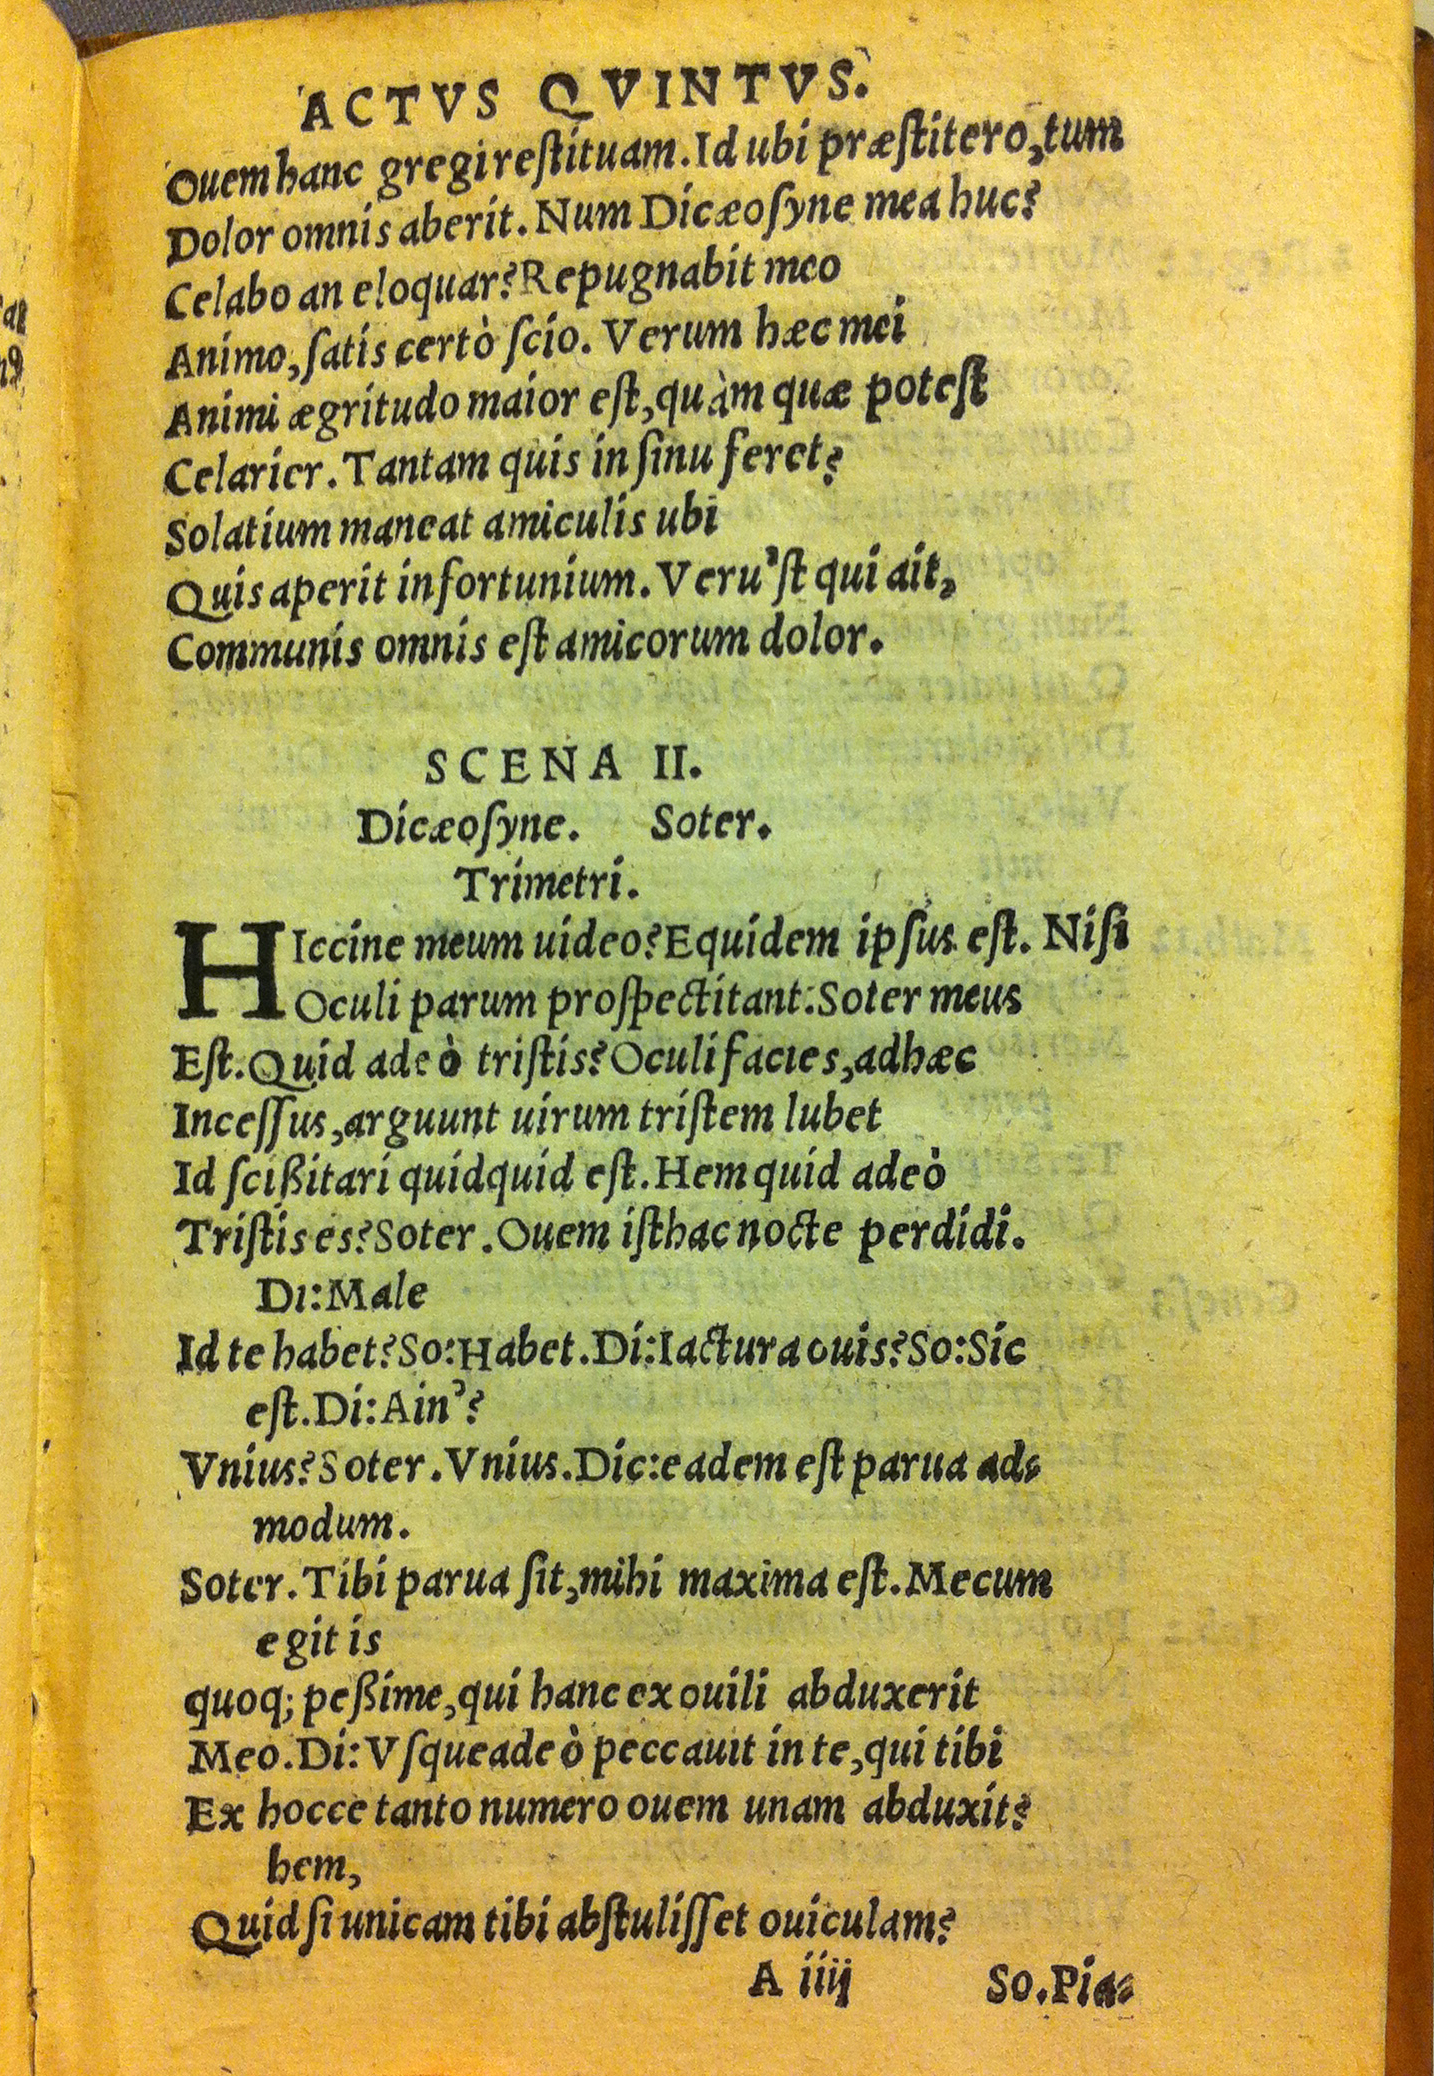 ACTVS QVINTVS.
Ouem hanc gregi reſtituam. Id ubi præſtitero, tum
Dolor omnis aberit. Num Dicæoſyne mea huc?
Celabo an eloquar? Repugnabit meo
Animo, ſatis certò ſcio. Verum hæc mei
Animi ægritudo maior eſt, quàm quæ poteſt
Celarier. Tantam quis in ſinu feret?
Solatium maneat amiculis ubi
Quis aperit infortunium. Veru'ſt qui ait,
Communis omnis eſt amicorum dolor.
SCENA II.
Dicæoſyne. Soter.
Trimetri.
HIccine meum uideo? Equidem ipſus eſt. Niſi
Oculi parum proſpectitant: Soter meus
Eſt. Quid adeò triſtis? Oculi facies, ad hæc
Inceſſus, arguunt uirum triſtem lubet
Id ſcißitari quidquid eſt. Hem quid adeò
Triſtis es? Soter. Ouem iſthac nocte perdidi.
Di: Male
Id te habet? So: Habet. Di: Iactura ouis? So: Sic
eſt. Di: Ain'?
Vnius? Soter. Vnius. Dic: eadem eſt parua ad-
modum.
Soter. Tibi parua ſit, mihi maxima eſt. Mecum
egit is
quoq; peßime, qui hanc ex ouili abduxerit
Meo. Di: Vſque adeò peccauit in te, qui tibi
Ex hocce tanto numero ouem unam abduxit?
hem,
Quid ſi unicam tibi abſtuliſſet ouiculam?
A iiij So. Pia-